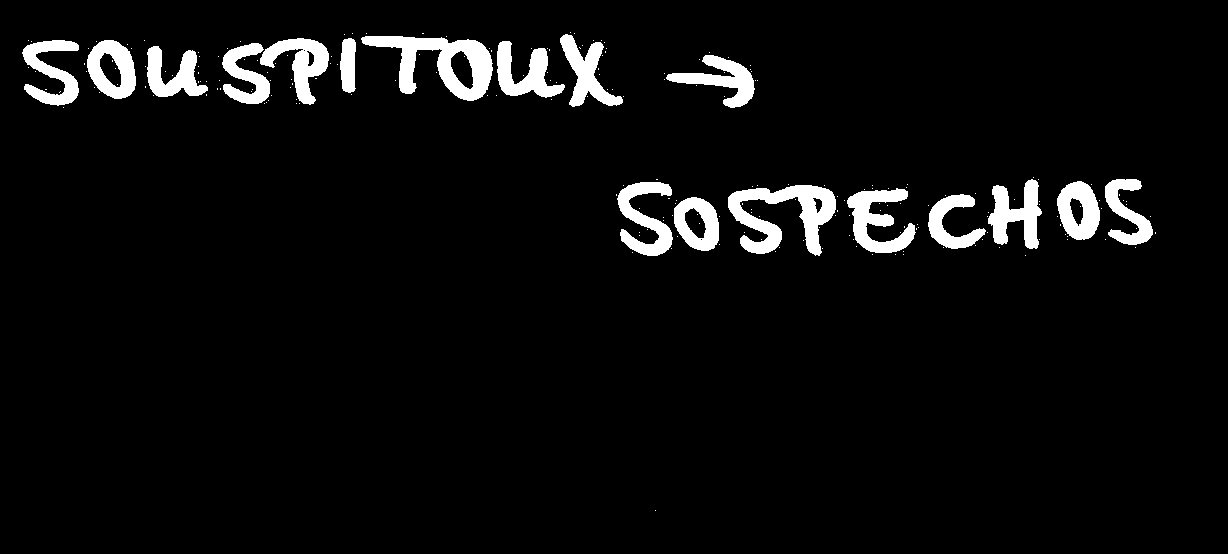 SOUSPITOUX →
SOSPECHOS